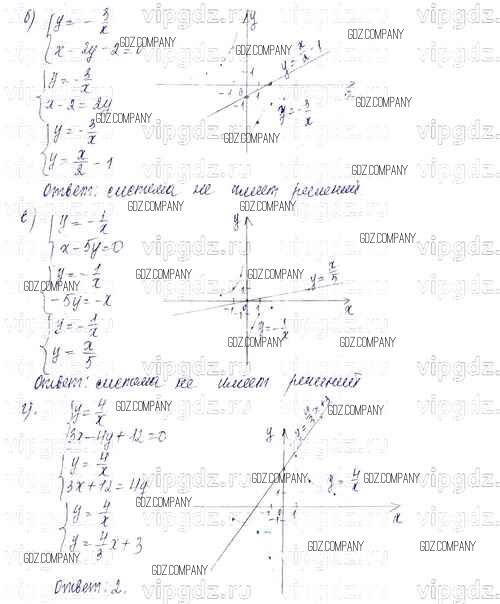 б) { y = - 3/x
x - 2y - 2 = 0
{ y = - 3/x
x - 2 = 2y
{ y = - 3/x
y = x/2 - 1
y
y = x/2 - 1
-1 0 1
y = - 3/x
Ответ: система не имеет решений
в) { y = - 1/x
x - 5y = 0
{ y = - 1/x
-5y = -x
{ y = - 1/x
y = x/5
y
y = x/5
-1 0 1
x
y = - 1/x
Ответ: система не имеет решений
г). { y = 4/x
3x - 4y + 12 = 0
{ y = 4/x
3x + 12 = 4y
{ y = 4/x
y = 4/3 x + 3
y
y = 4/x
-1 1
x
Ответ: 2.
GDZ.COMPANY
vipgdz.ru